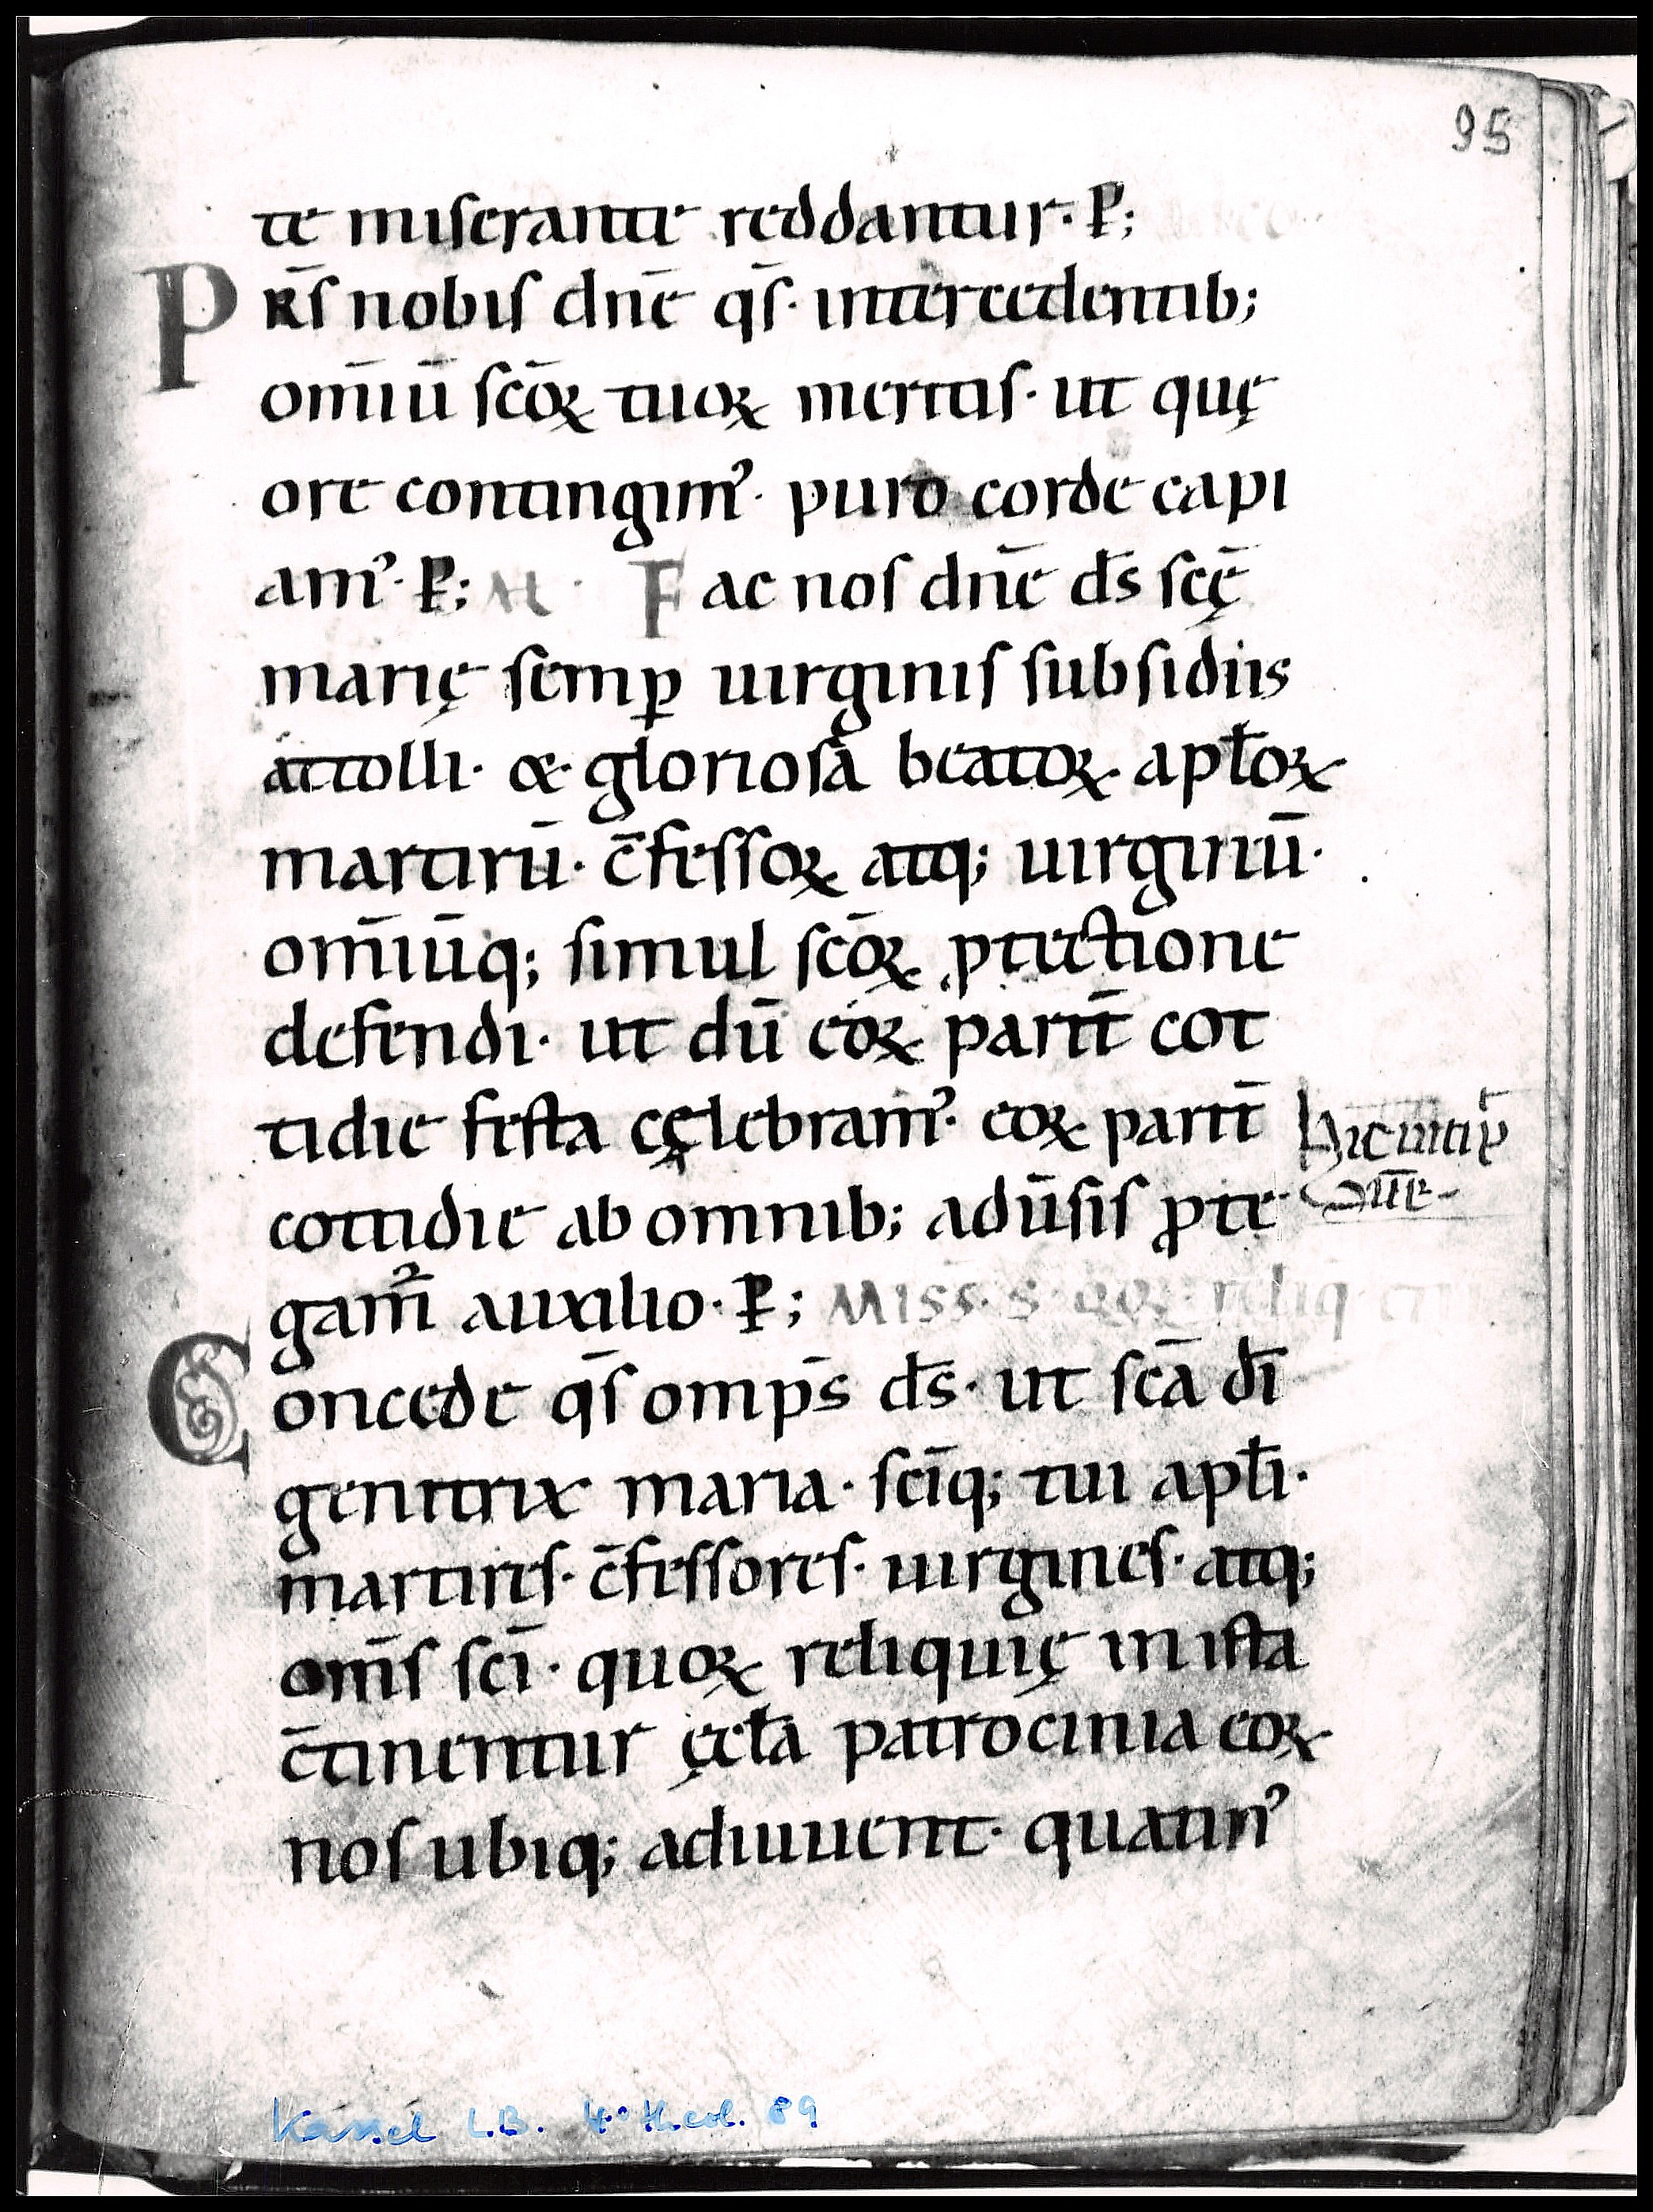 95
te miserante reddantur· P̱;
PRS̄ nobis dn̄e q̄s· intercedentib;
om̄iū sc̄oꝝ tuoꝝ meritis· ut quę
ore contingimꝰ· puro corde capi
amꝰ· P̱; Al· Fac nos dn̄e d̄s sc̄ę
marię semꝑ uirginis subsidiis
attolli· & gloriosā beatoꝝ· apl̄oꝝ
martirū· c̄fessoꝝ atq; uirginū·
om̄iūq; simul sc̄oꝝ ꝓtectione
defendi· ut dū eoꝝ parit̄ cot
tidie festa cęlebramꝰ· eoꝝ parit̄
cottidie ab omnib; adūsis ꝓte
gam̄ auxilio· P̱; Miss· S· qoꝝ reliq̄
Concede q̄s omp̄s d̄s· ut sc̄a dī
genitrix maria· sc̄iq; tui apl̄i·
martires· c̄fessores· uirgines· atq;
om̄s sc̄i· quoꝝ reliquię in ista
c̄tinentur ęcl̄a patrocinia eoꝝ
nos ubiq; adiuuent· quatinꝰ
Kassel L.B. 4° theol. 89